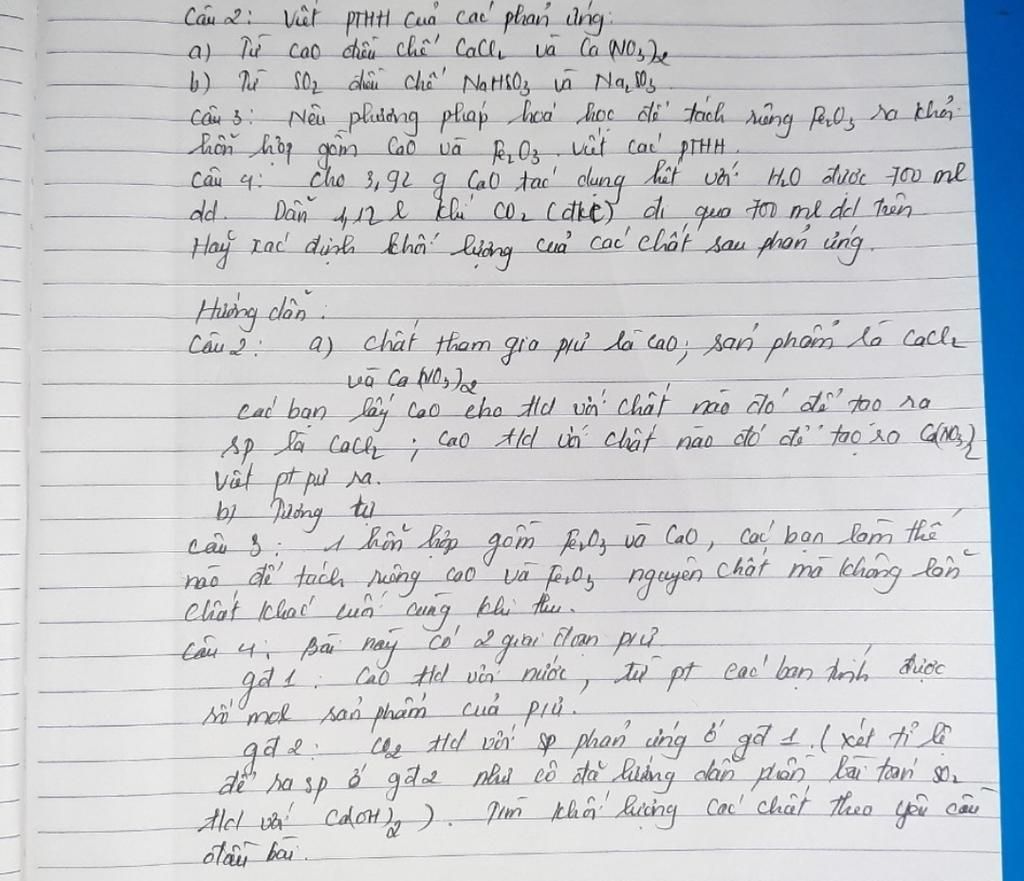 Câu 2: Viết PTHH của các phản ứng:
a) Từ CaO điều chế CaCl₂ và Ca(NO₃)₂
b) Từ SO₂ điều chế NaHSO₃ và Na₂SO₃
Câu 3: Nêu phương pháp hoá học để tách riêng Fe₂O₃ ra khỏi
hỗn hợp gồm CaO và Fe₂O₃. Viết các PTHH.
Câu 4: Cho 3,92 g CaO tác dụng hết với H₂O được 700 ml
dd. Dẫn 1,12 l khí CO₂ (đktc) đi qua 700 ml dd trên
Hãy xác định khối lượng của các chất sau phản ứng.
Hướng dẫn:
Câu 2: a) Chất tham gia pư là CaO; sản phẩm là CaCl₂
và Ca(NO₃)₂
các bạn lấy CaO cho t/d với chất nào đó để tạo ra
sp là CaCl₂; CaO t/d với chất nào đó để tạo ra Ca(NO₃)₂
Viết pt pư ra.
b) Tương tự
Câu 3: 1 hỗn hợp gồm Fe₂O₃ và CaO, các bạn làm thế
nào để tách riêng CaO và Fe₂O₃ nguyên chất mà không lẫn
chất khác cuối cùng khi thu.
Câu 4: Bài này có 2 giai đoạn pư
gđ 1: CaO t/d với nước, từ pt các bạn tính được
số mol sản phẩm của pư.
gđ 2: CO₂ t/d với sp phản ứng ở gđ 1. (xét tỉ lệ
để ra sp ở gđ 2 như cô đã hướng dẫn phần bài toán SO₂
t/d với Ca(OH)₂). Tìm khối lượng các chất theo yêu cầu
đầu bài.